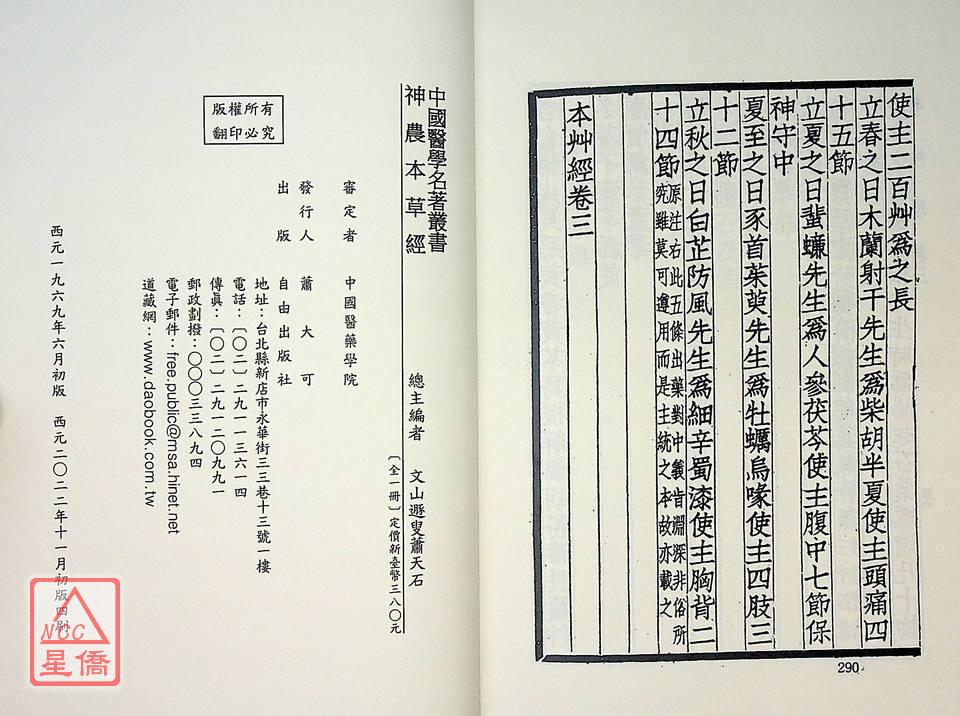 使主二百艸為之長
立春之日木蘭射干先生為柴胡半夏使主頭痛四
十五節
立夏之日蜚蠊先生為人參茯苓使主腹中七節保
神守中
夏至之日豕首茱萸先生為牡蠣烏喙使主四肢三
十二節
立秋之日白芷防風先生為細辛蜀漆使主胸背二
十四節原注右此五條出藥對中義旨淵深非俗所
究雖莫可遵用而是主統之本故亦載之
本艸經卷三
290
中國醫學名著叢書
神農本草經
總主編者 文山遯叟蕭天石
〔全一冊〕定價新臺幣三八〇元
審定者 中國醫藥學院
發行人 蕭大可
出版 自由出版社
地址：台北縣新店市永華街三三巷十三號一樓
電話：〔〇二〕二九一一三六一四
傳眞：〔〇二〕二九一二〇九九一
郵政劃撥：〇〇〇三三八九四
電子郵件：free.public@msa.hinet.net
道藏網：www.daobook.com.tw
版權所有
翻印必究
西元一九六九年六月初版 西元二〇二二年十一月初版四刷
NCC
星僑